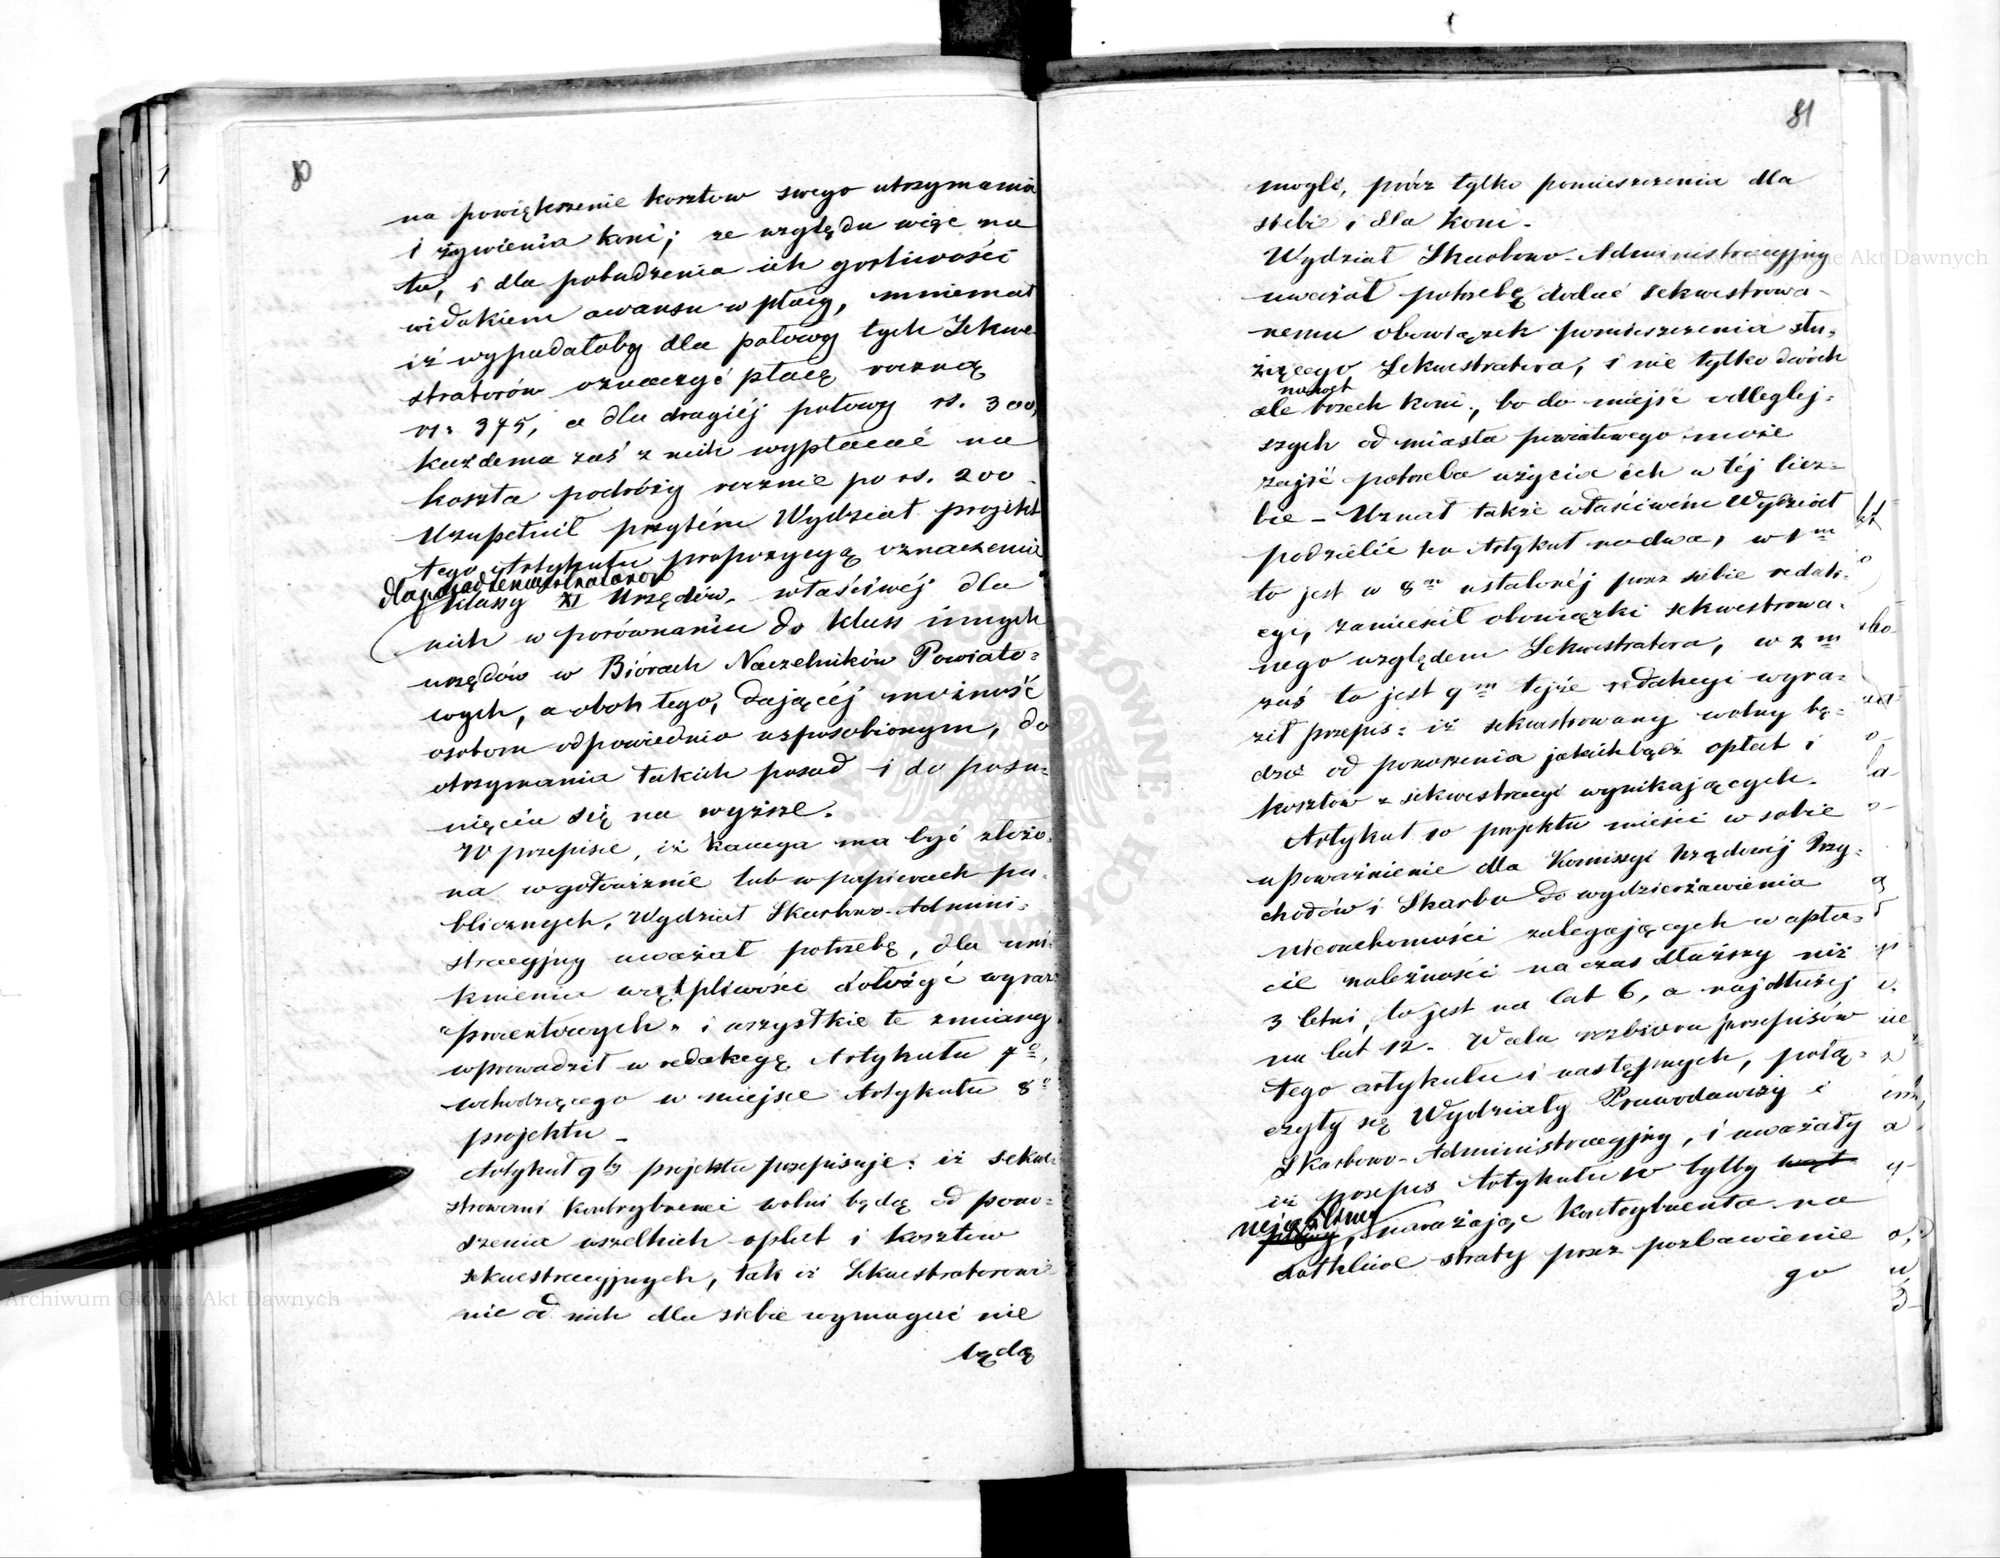 80
na powiększenie kosztow swego utrzymania
i żywienia koni; ze względu więc na
to, i dla pobudzenia ich gorliwości
widokiem awansu w płacy, mniemał
iż wypadałoby dla połowy tych Sekwe
stratorów oznaczyć płacę roczną
rs. 375, a dla drugiéj połowy rs. 300,
każdemu zaś z nich wypłacać na
koszta podróży rocznie po rs. 200.
Uzupełnił przytém Wydział projekt
tego Artykułu propozycyą oznaczenia
dla posad Sekwestratorow
klassy XI Urzędów, właściwéj dla
nich w porównaniu do klass innych
urzędów w Biórach Naczelników Powiato-
wych, a obok tego, dającéj możność
osobom odpowiednio usposobionym, do
otrzymania takich posad i do posu-
nięcia się na wyższe.
W przepisie, iż kaucya ma być złożo-
na w gotowiznie lub w papierach pu-
blicznych, Wydział Skarbowo-Admini-
stracyjny uważał potrzebę, dla uni-
knienia wątpliwości dołożyć wyraz
"procentowych" i wszystkie te zmiany
wprowadził w redakcyę Artykułu 7º,
wchodzącego w miejsce Artykułu 8º
projektu _
Artykuł 9ty projektu przepisuje: iż sekwe-
strowani kontrybuenci wolni będą od pono-
szenia wszelkich opłat i kosztow
sekwestracyjnych, tak iż Sekwestratorowie
nic od nich dla siebie wymagać nie
będą
81
mogli, prócz tylko pomieszczenia dla
siebie i dla koni.
Wydział Skarbowo-Administracyjny
uważał potrzebę dodać sekwestrowa-
nemu obowiązek pomieszczenia słu-
żącego Sekwestratora, i nie tylko dwóch
nawet
ale trzech koni, bo do miejsc odleglej-
szych od miasta powiatowego może
zajść potrzeba użycia ich w téj licz-
bie – Uznał także właściwém Wydział
podzielić ten Artykuł na dwa, w 1m
to jest w 8m ustalonéj przez siebie redak-
cyi, zamieścił obowiązki sekwestrowa-
nego względem Sekwestratora, w 2m
zaś to jest 9m tejże redakcyi wyra-
ził przepis: iż sekwestrowany wolny bę-
dzie od ponoszenia jakichbądź opłat i
kosztów z sekwestracyi wynikających.
Artykuł 10 projektu mieści w sobie
upoważnienie dla Komissyi Rządowéj Przy-
chodów i Skarbu do wydzierżawienia
nieruchomości zalegających w opła-
cie należności na czas dłuższy niż
3 letni, to jest na lat 6, a najdłużéj
na lat 12. W celu rozbioru przepisów
tego artykułu i następnych, połą-
czyły się Wydziały Prawodawczy i
Skarbowo-Administracyjny, i uważały
iż przepis Artykułu 10 byłby
narażając kontrybuenta na
dotkliwe straty przez pozbawienie
go
Archiwum Główne Akt Dawnych
Archiwum Główne Akt Dawnych